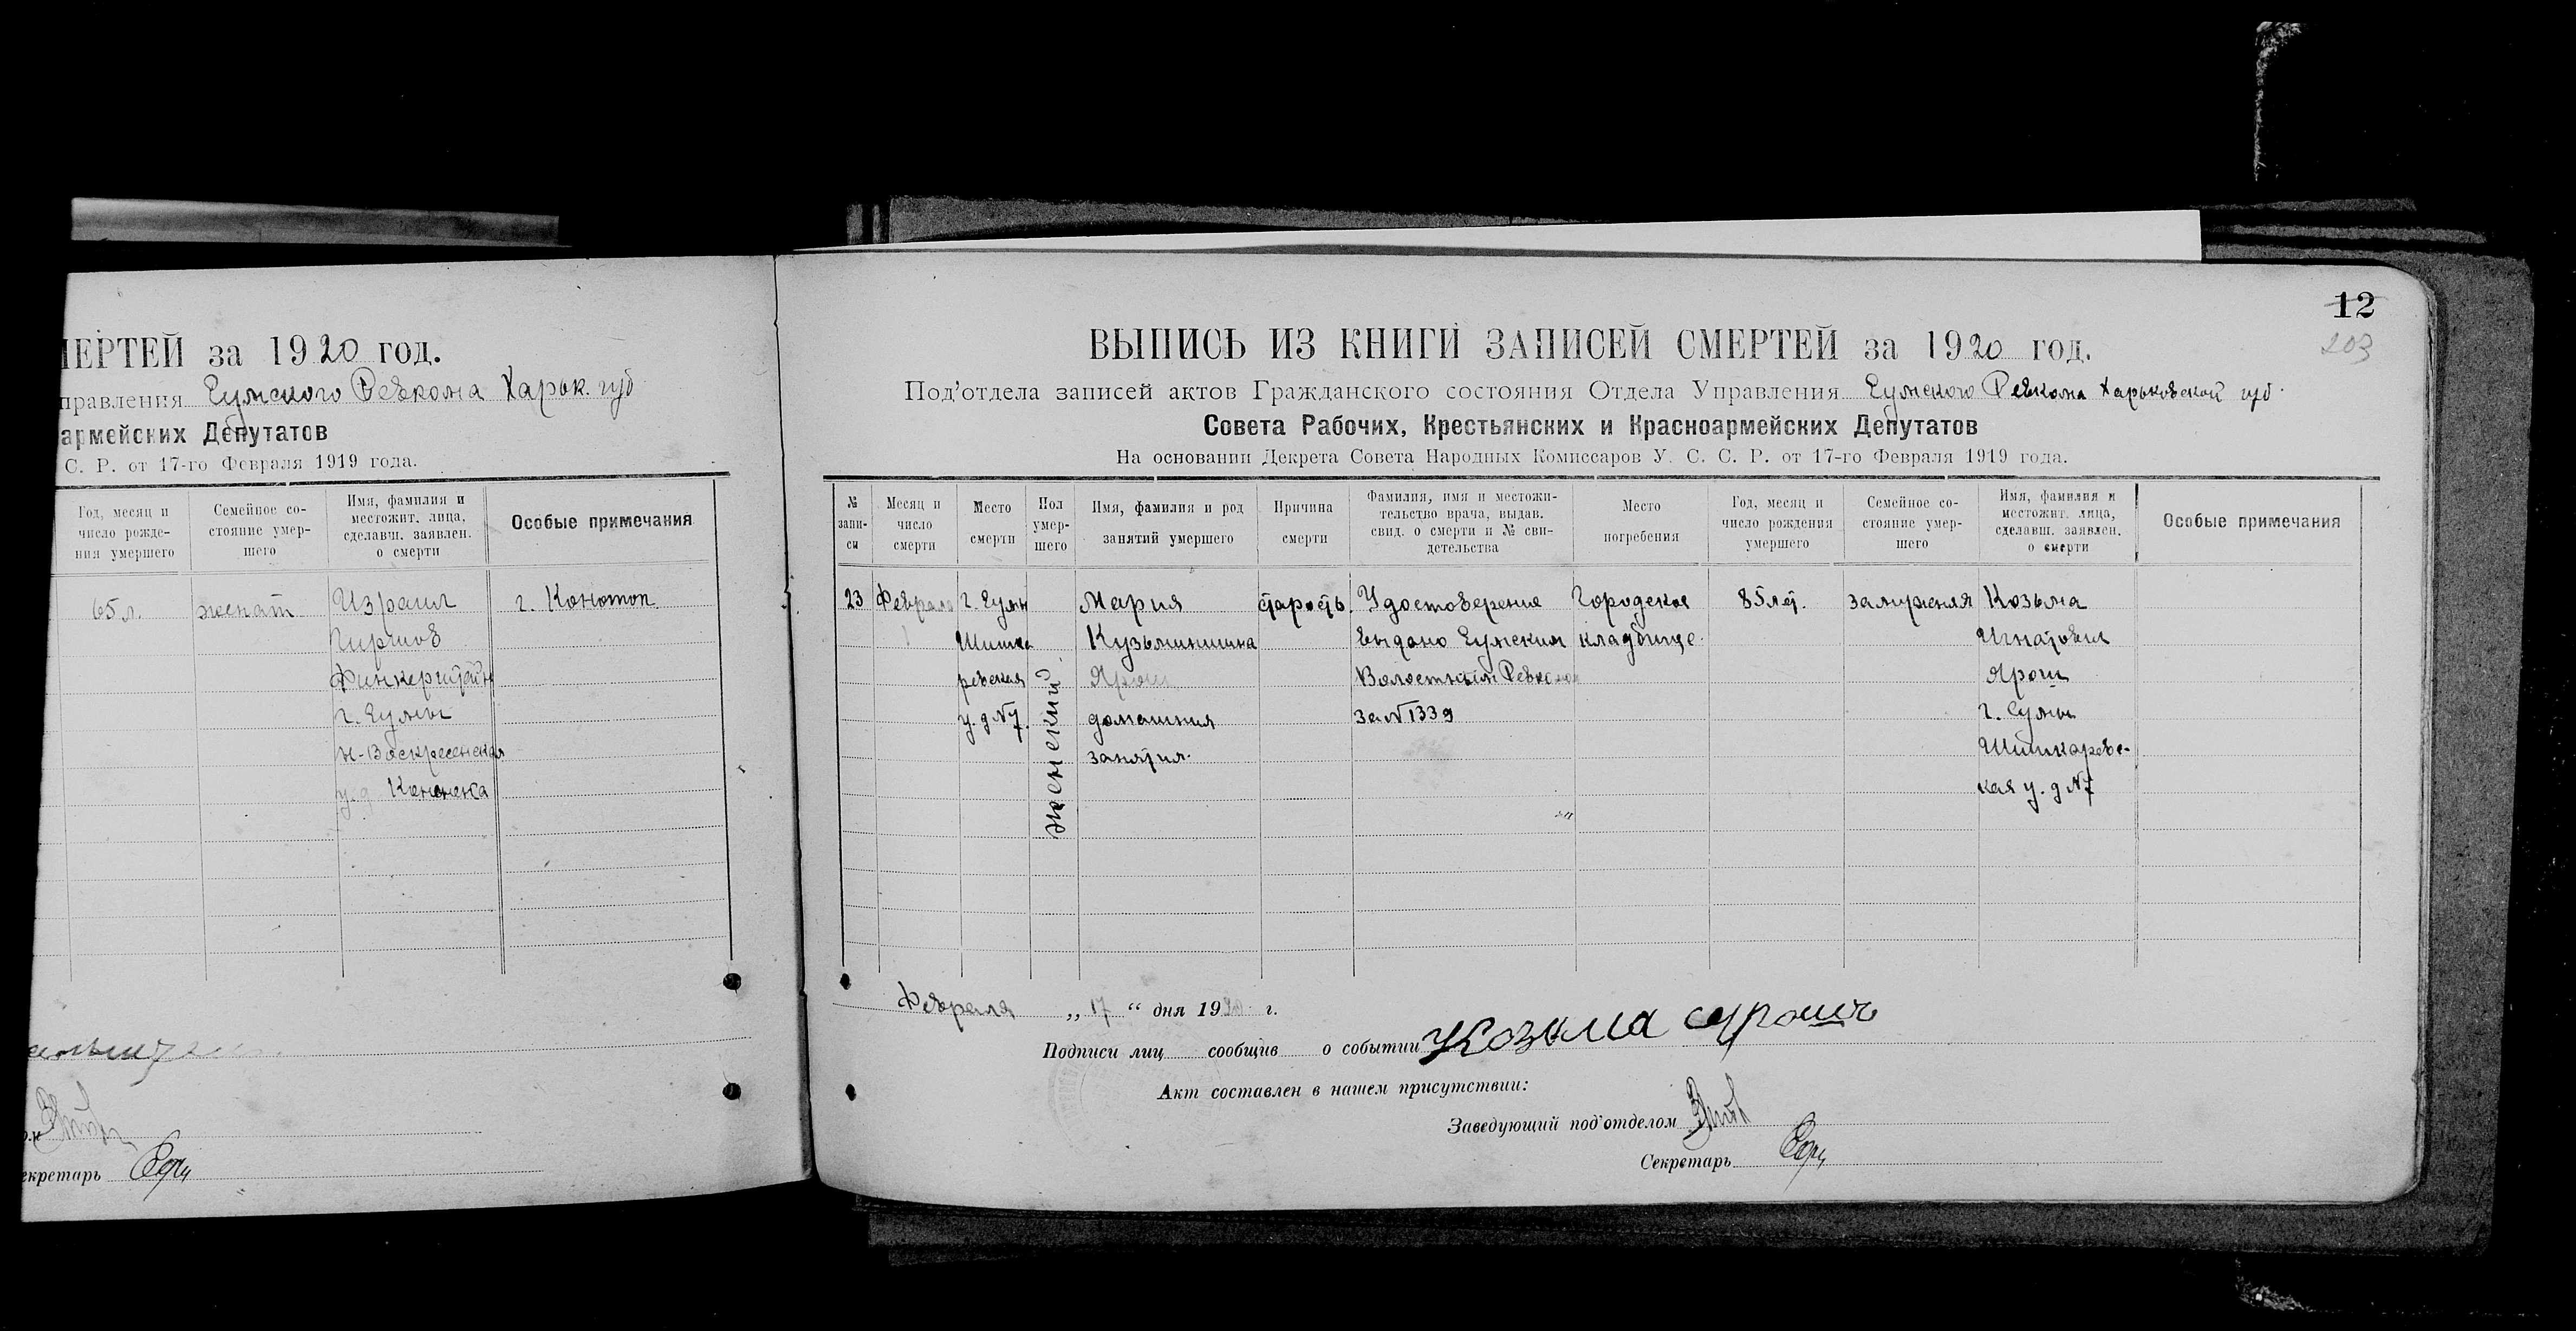 МЕРТЕЙ за 1920 год.
правления Сумского Ревкома Харьк. губ
армейских Депутатов
С. Р. от 17-го Февраля 1919 года.
Год, месяц и число рожде-ния умершего
Семейное со-стояние умер-шего
Имя, фамилия и местожит. лица, сделавш. заявлен. о смерти
Особые примечания
65 л.
женат
Израил
г. Конотоп
Гиршов
Финкерштейн
г. Сумы
н-Воскресенская
у. д Кононенка
екретарь
12
203
ВЫПИСЬ ИЗ КНИГИ ЗАПИСЕЙ СМЕРТЕЙ за 1920 год.
Под'отдела записей актов Гражданского состояния Отдела Управления Сумского Ревкома Харьковской губ.
Совета Рабочих, Крестьянских и Красноармейских Депутатов
На основании Декрета Совета Народных Комиссаров У. С. С. Р. от 17-го Февраля 1919 года.
№ запи-си
Месяц и число смерти
Место смерти
Пол умер-шего
Имя, фамилия и род занятий умершего
Причина смерти
Фамилия, имя и местожи-тельство врача, выдав. свид. о смерти и № сви-детельства
Место погребения
Год, месяц и число рождения умершего
Семейное со-стояние умер-шего
Имя, фамилия и местожит. лица, сделавш. заявлен. о смерти
Особые примечания
23
Февраля
г. Сумы
Шишка
ревская
у. д N7.
женский
Мария
Кузьминишна
Ярош
домашния
занятия.
старость.
Удостоверение
выдано Сумским
Волостным Ревкомом
за N 1339
Городское
кладбище.
85 лет.
замужняя
Козьма
Игнатовия
Ярош
г. Сумы
Шишкаревс-
кая у. д N7
Февраля „ 17 “ дня 1920 г.
Подписи лиц сообщив о событии Козьма Ярошъ
Акт составлен в нашем присутствии:
Заведующий под'отделом
Секретарь